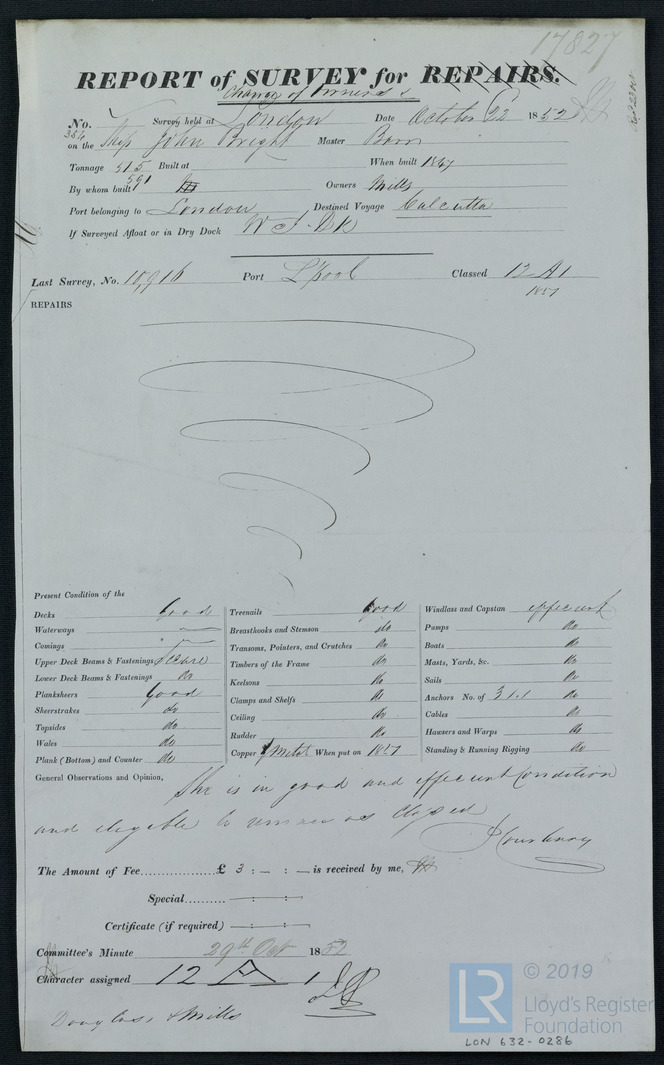 17827
REPORT of SURVEY for REPAIRS.
Change of Owners &
No. Survey held at London Date October 22 1852
on the Ship John Bright Master Barr
Tonnage 515 Built at When built 1847
591
By whom built Owners Mills
Port belonging to London Destined Voyage Calcutta
If Surveyed Afloat or in Dry Dock W I Dk
Last Survey, No. 10,916 Port L'pool Classed 12 A 1
1851
REPAIRS
Present Condition of the
Decks Good
Waterways
Comings
Upper Deck Beams & Fastenings Secure
Lower Deck Beams & Fastenings do
Planksheers Good
Sheerstrakes do
Topsides do
Wales do
Plank (Bottom) and Counter do
Treenails Good
Breasthooks and Stemson do
Transoms, Pointers, and Crutches do
Timbers of the Frame do
Keelsons do
Clamps and Shelfs do
Ceiling do
Rudder do
Copper Y Metal When put on 1851
Windlass and Capstan efficient
Pumps do
Boats do
Masts, Yards, &c. do
Sails do
Anchors No. of 3 1.1 do
Cables do
Hawsers and Warps do
Standing & Running Rigging do
General Observations and Opinion, She is in good and efficient Condition
and eligible to remain as Classed
J Courtenay
The Amount of Fee £ 3 : – : – is received by me,
Special – : – : –
Certificate (if required) – : – : –
Committee's Minute 29th Oct 1852
Character assigned 12 A 1
Douglas & Mills
© 2019
LR Lloyd's Register
Foundation
LON 632-0286